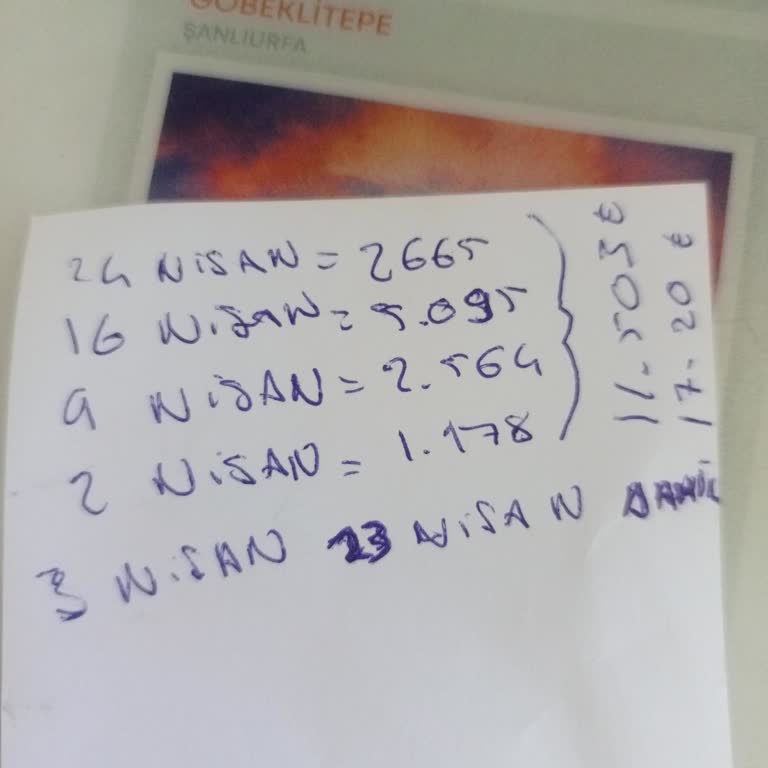 GÖBEKLİTEPE
ŞANLIURFA
24 NİSAN = 2665
16 NİSAN = 5.095
9 NİSAN = 2.564
2 NİSAN = 1.178
11.503 ₺
17.20 ₺
3 NİSAN 23 NİSAN DAHİL